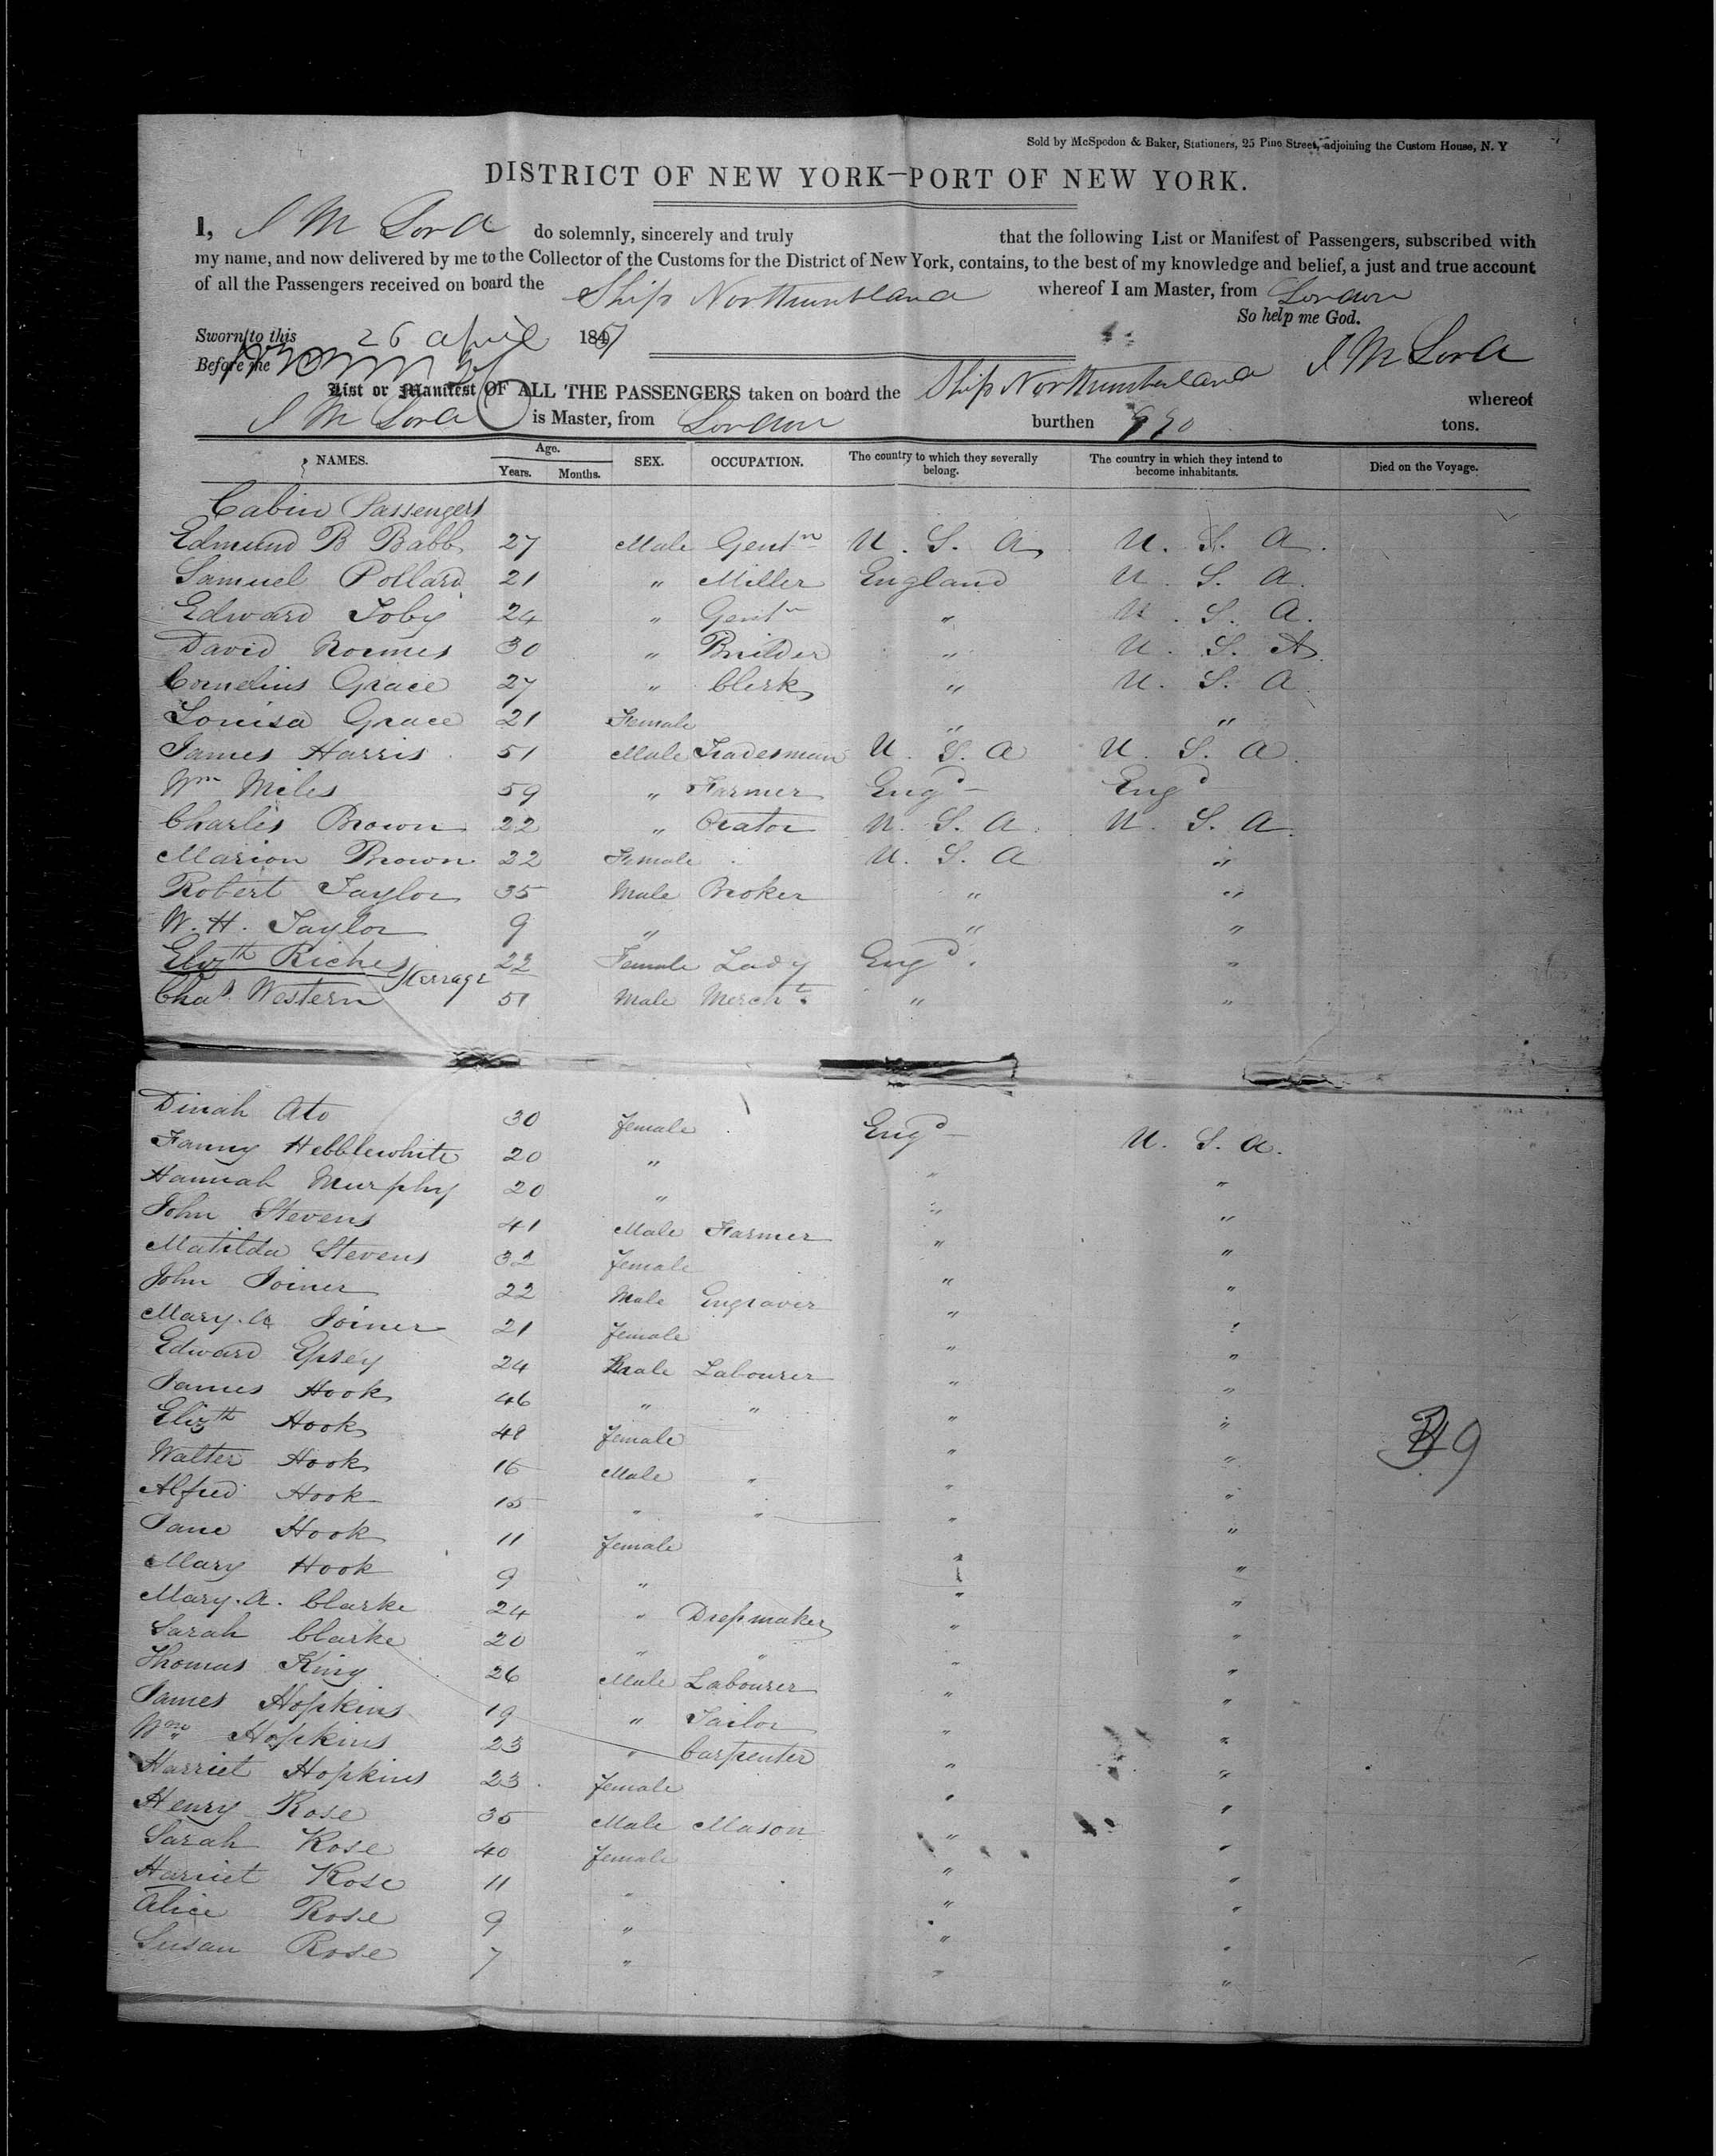 Sold by McSpedon & Baker, Stationers, 25 Pine Street, adjoining the Custom House, N. Y
DISTRICT OF NEW YORK—PORT OF NEW YORK.
I, J M Lord do solemnly, sincerely and truly that the following List or Manifest of Passengers, subscribed with
my name, and now delivered by me to the Collector of the Customs for the District of New York, contains, to the best of my knowledge and belief, a just and true account
of all the Passengers received on board the Ship Northumbland whereof I am Master, from London
So help me God.
Sworn to this 26 April 18
Before me J M Lord
List or Manifest OF ALL THE PASSENGERS taken on board the Ship Northumberland whereof
J M Lord is Master, from London burthen tons.
NAMES. Age. Years. Months. SEX. OCCUPATION. The country to which they severally belong. The country in which they intend to become inhabitants. Died on the Voyage.
Cabin Passengers
Edmund B Babb 27 Male Gentn U. S. A. U. S. A.
Samuel Pollard 21 " Miller England U. S. A.
Edward Toby 24 " Gentn " U. S. A.
David 30 " Builder " U. S. A.
Cornelius Grace 27 " Clerk " U. S. A.
Louisa Grace 21 Female " "
James Harris 51 Male Tradesman U. S. A U. S. A.
Wm Miles 59 " Farmer Engd Engd
Charles Brown 22 " Orator U. S. A. U. S. A.
Marion Brown 22 Female U. S. A "
Robert Taylor 35 Male Broker " "
W. H. Taylor 9 " " "
Elizth Riches 22 Female Lady Engd. "
Steerage
Chas. Western 51 Male Mercht. " "
Dinah Ato 30 Female Engd U. S. A.
Fanny Hebblewhite 20 " " "
Hannah Murphy 20 " " "
John Stevens 41 Male Farmer " "
Matilda Stevens 32 Female " "
John Joiner 22 Male Engraver " "
Mary. A Joiner 21 Female " "
Edward 24 Male Labourer " "
James Hook 46 " " " "
Elizth Hook 48 Female " "
Walter Hook 16 Male " " "
Alfred Hook 15 " " " "
Jane Hook 11 Female " "
Mary Hook 9 " " "
Mary. A. Clarke 24 " Dressmaker " "
Sarah Clarke 20 " " " "
Thomas King 26 Male Labourer " "
James Hopkins 19 " Tailor " "
Wm Hopkins 23 " Carpenter " "
Harriet Hopkins 23 Female " "
Henry Rose 35 Male Mason " "
Sarah Rose 40 Female " "
Harriet Rose 11 " " "
Alice Rose 9 " " "
Susan Rose 7 " " "